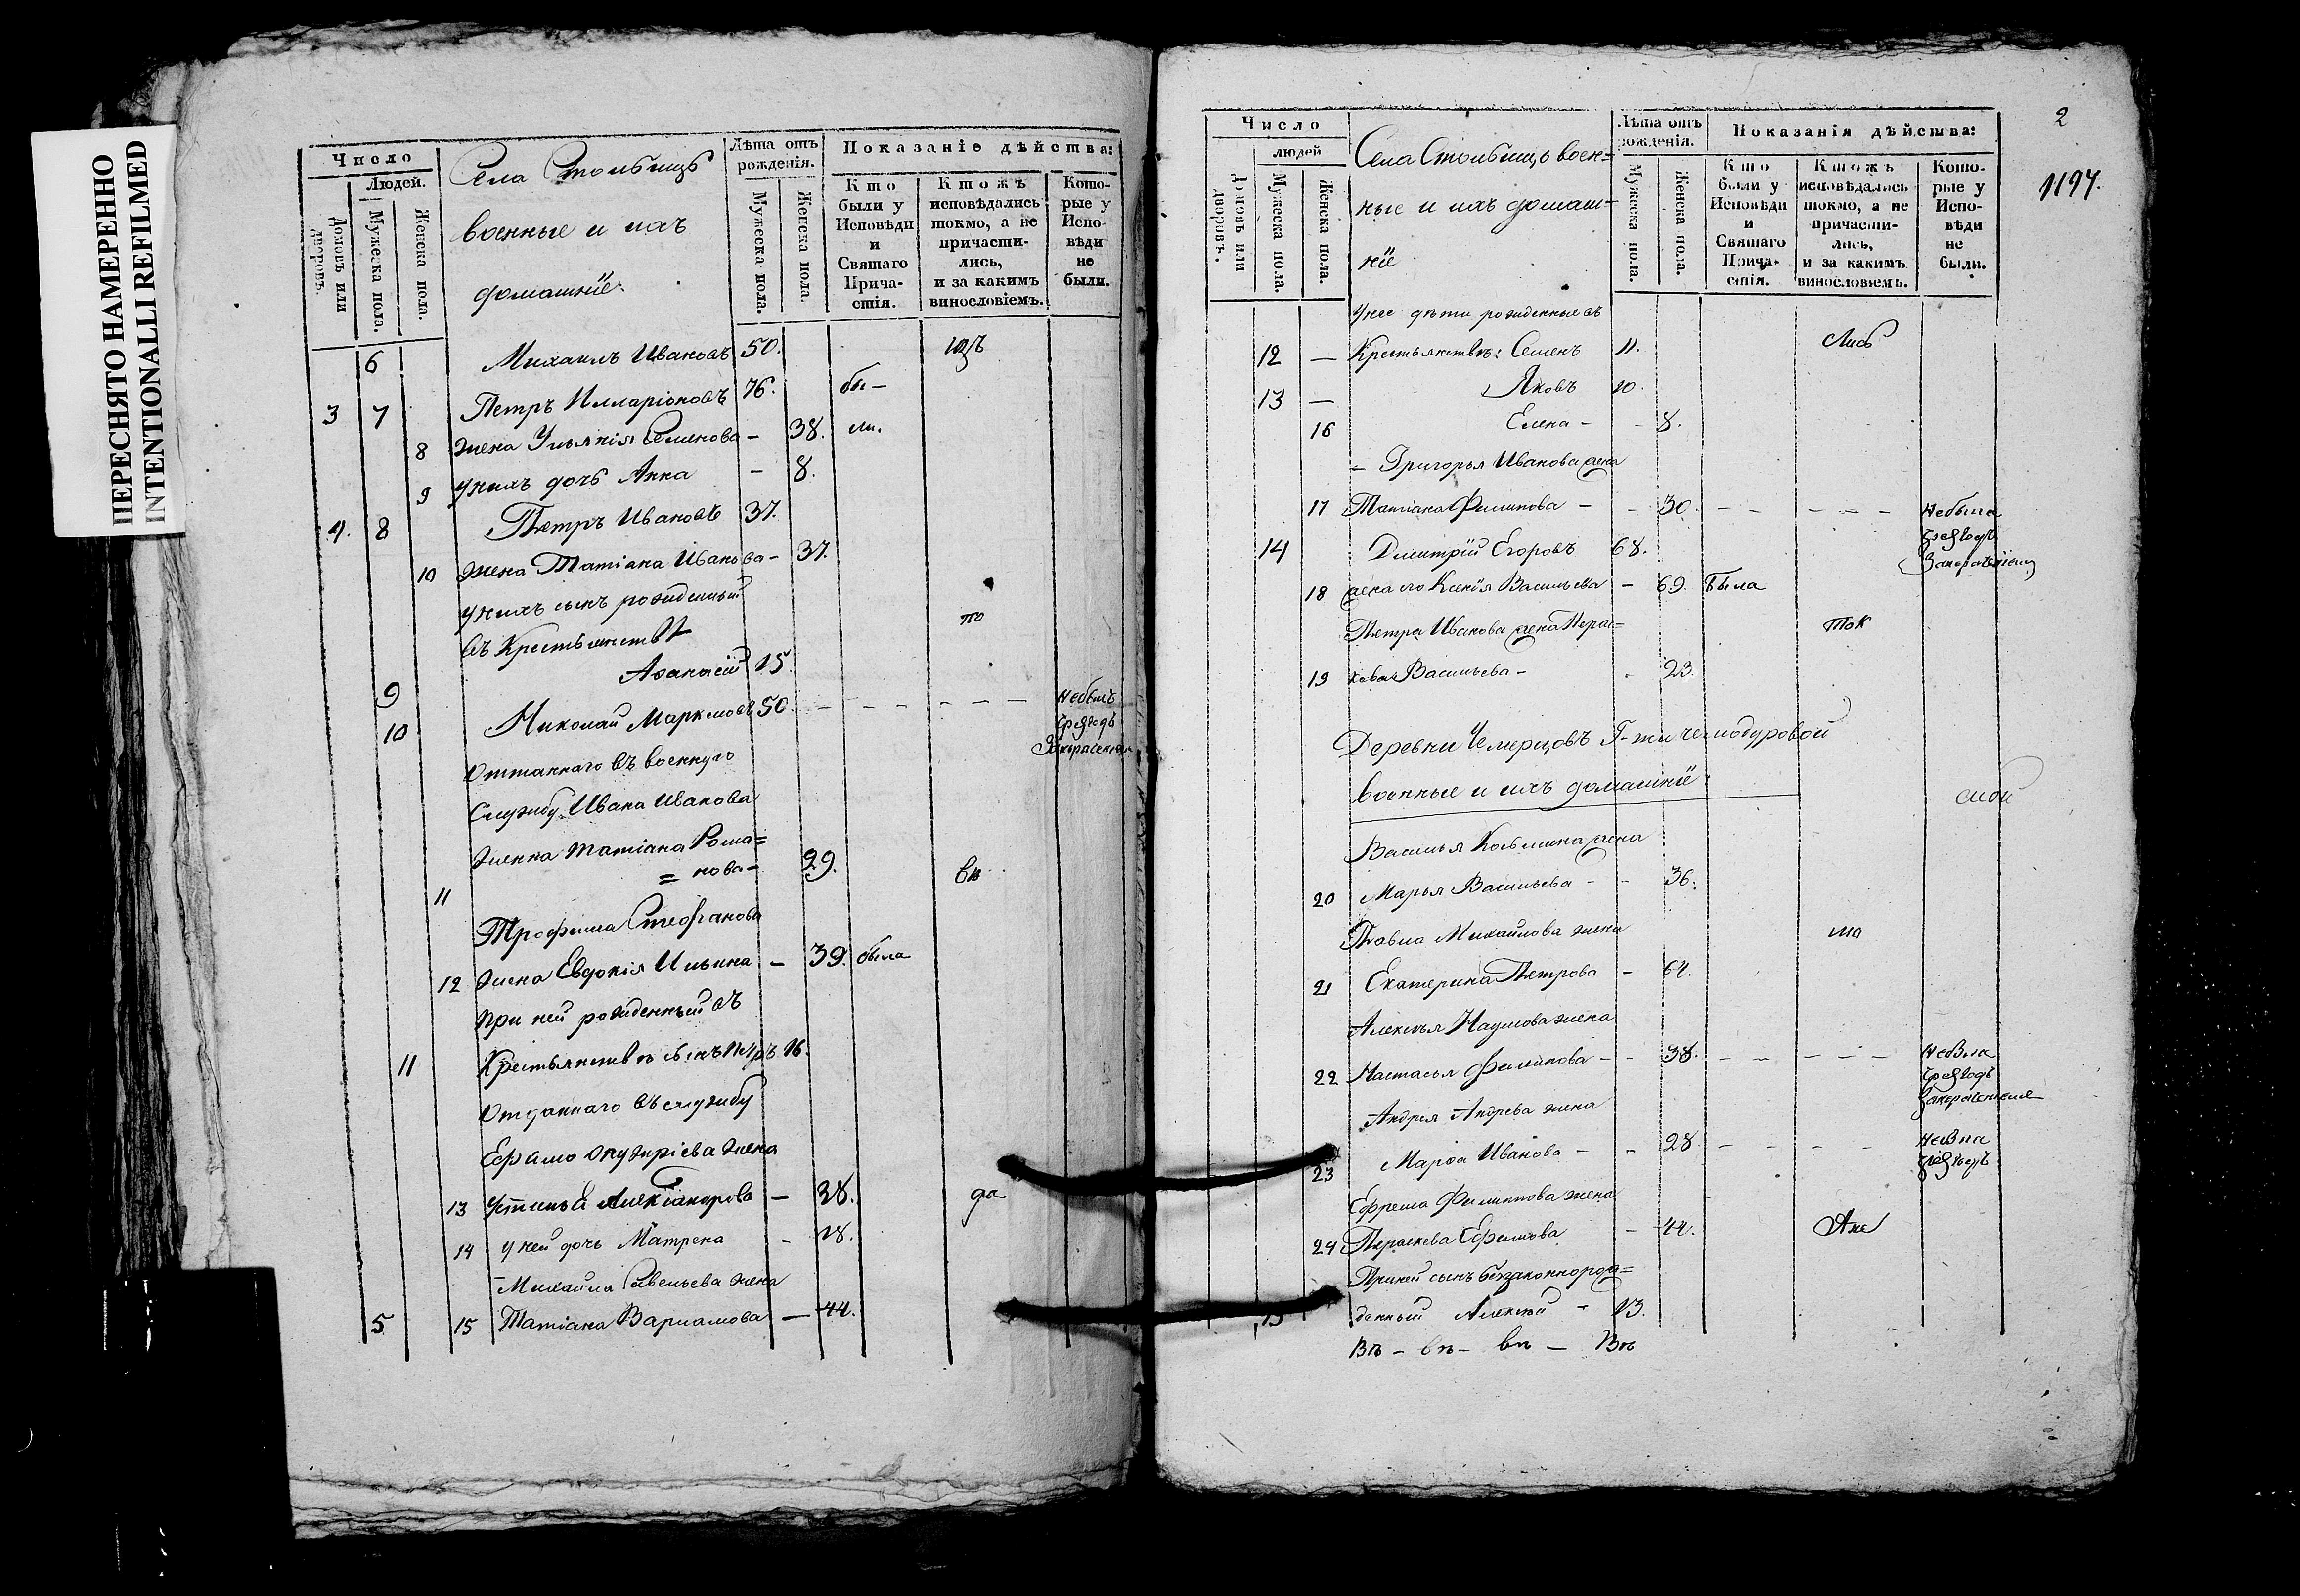 ПЕРЕСНЯТО НАМЕРЕННО
INTENTIONALLI REFILMED
Число
Людей.
Домовъ или дворовъ.
Мужеска пола.
Женска пола.
Села Столбищъ
военные и ихъ
домашніе.
Лѣта отъ рожденія.
Мужеска пола.
Женска пола.
Показаніе дѣйства:
Кто были у Исповѣди и Святаго Причастія.
Ктожъ исповѣдались токмо, а не причастились, и за какимъ винословіемъ.
Которые у Исповѣди не были.
6 Михаилъ Ивановъ 50.
3 7 Петръ Илларіоновъ 76. бы-
8 жена Ульянія Семенова - 38. ли.
9 у нихъ дочь Анна - 8.
4. 8 Петръ Ивановъ 37.
10 жена Татіана Иванова - 37.
у нихъ сынъ рожденный
въ Крестьянствѣ то
9 Афанасій 15
10 Николай 50. - - - - - - Небылъ
Отданнаго въ военную
Службу Ивана Иванова
женка Татіана Рома=
11 = нова - 29. въ
Трофима Стефанова
12 жена Евдокія Ильина - 39. была
при ней рожденный въ
11 Крестьянствѣ сынъ 16.
Отданнаго въ службу
жена
13 - 38. да
14 у ней дочь Матрена - 18.
Михайла Савельева жена
5 15 Татіана Варламова - 44.
2
1197.
Число
людей
Домовъ или дворовъ.
Мужеска пола.
Женска пола.
Села Столбищъ воен=
ные и ихъ домаш=
ніе
Лѣта отъ рожденія.
Мужеска пола.
Женска пола.
Показанія дѣйства:
Кто были у Исповѣди и Святаго Причастія.
Ктожъ исповѣдались токмо, а не причастились, и за какимъ винословіемъ.
Которые у Исповѣди не были.
у нее дѣти рожденные въ
12 - Крестьянствѣ: Семенъ 11. лись
13 - Яковъ 10.
16 Елена - - 8.
- Григорья Иванова жена
17 Татіана Филипова - - 30. - - - - - Небыла
14 Димитрій Егоровъ 68.
18 жена его Ксенія Васильева - 69. Была
Петра Иванова жена Парас= ток
19 кева Васильева - - 23.
Деревни Чемерцовъ Г-жи
военные и ихъ домашніе
Василья Козьмина жена
20 Марья Васильева - - 36.
Павла Михайлова жена мо
21 Екатерина Петрова - 64.
Алексѣя Наумова жена
22 Настасья Филипова - - 38. - - - - -
Андрея Андрева жена
23 Марѳа Иванова - - 28. - - - -
Ефрема Филиппова жена
24 Параскева Ефимова - 44. А не
При ней сынъ беззаконнорож=
15 денный Алексѣй - 13.
Вѣ - вѣ - вѣ - Вѣ